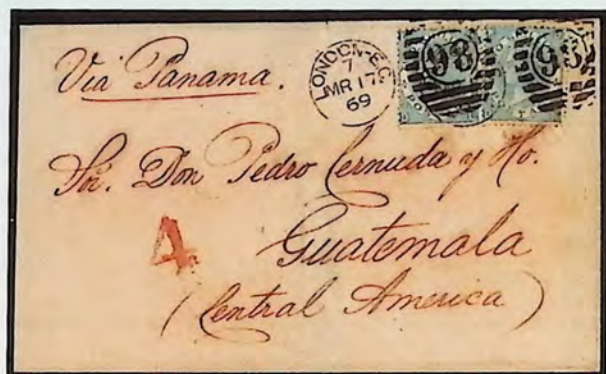 Via Panama.
LONDON-E.C
7
MR 17
69
98
98
Sor. Don Pedro Cernuda y Ho.
4
Guatemala
(Central America)